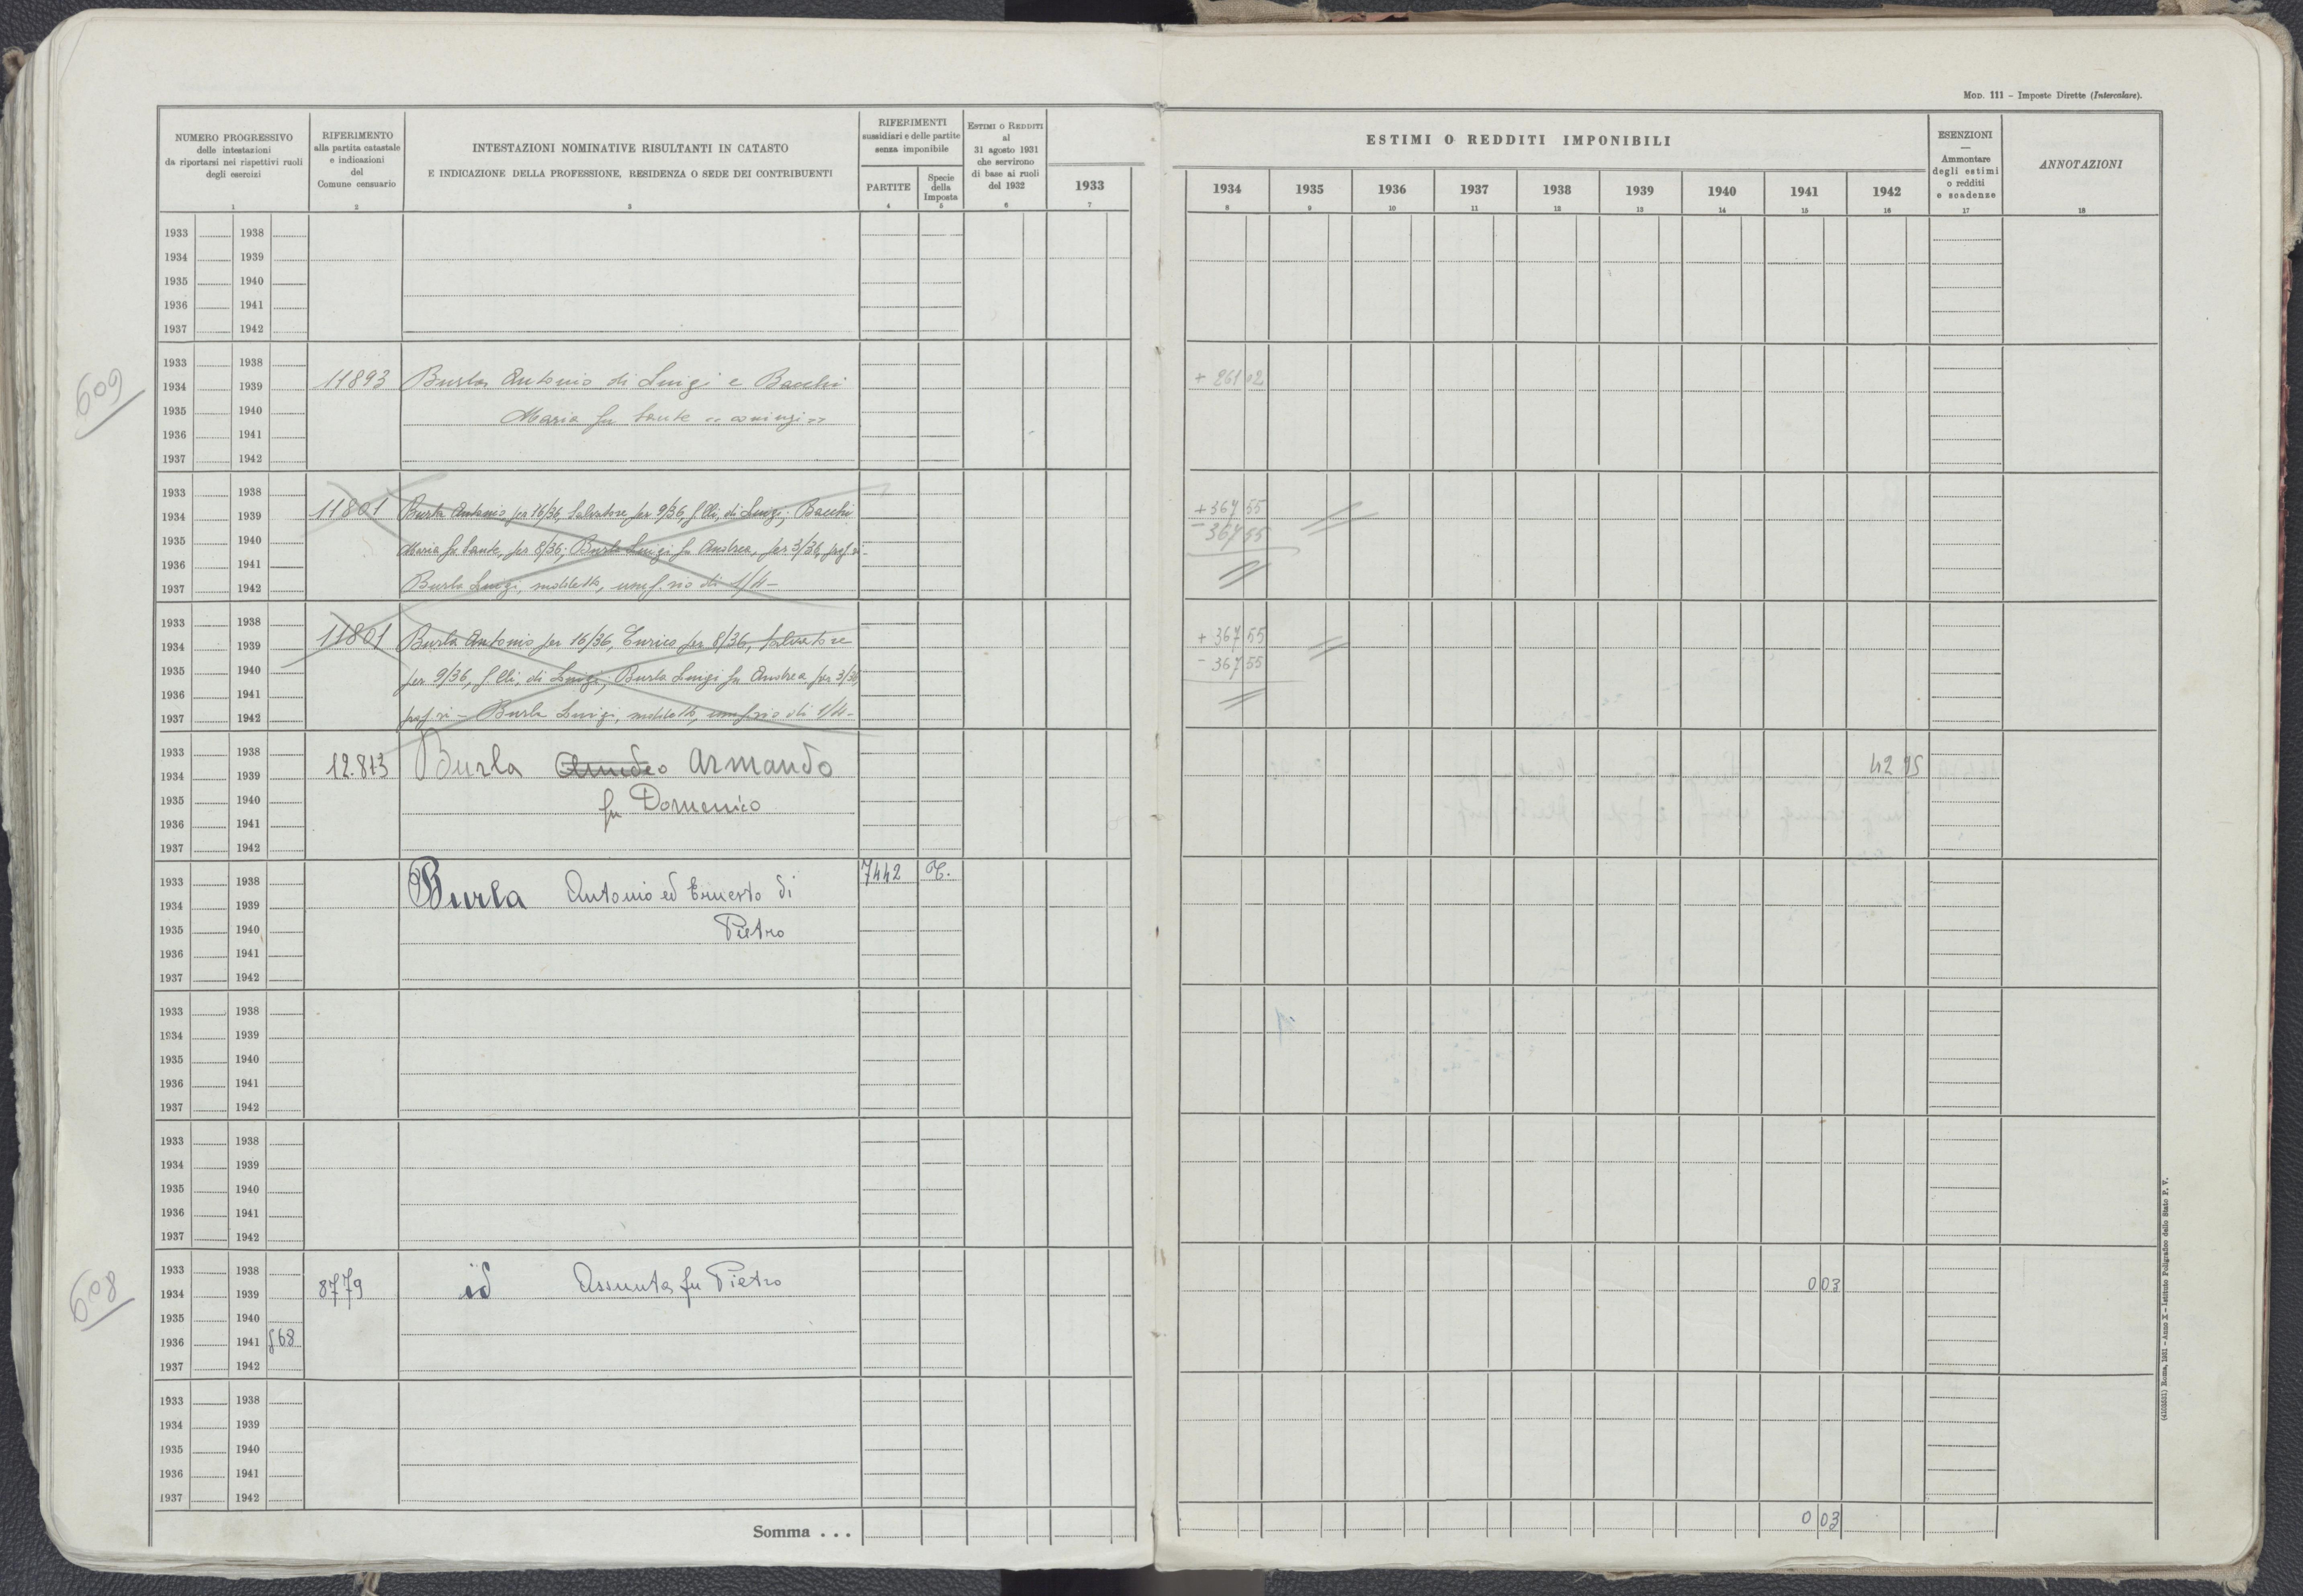 Mod. 111 – Imposte Dirette (Intercalare).
NUMERO PROGRESSIVO
delle intestazioni
da riportarsi nei rispettivi ruoli
degli esercizi
1
RIFERIMENTO
alla partita catastale
e indicazioni
del
Comune censuario
2
INTESTAZIONI NOMINATIVE RISULTANTI IN CATASTO
E INDICAZIONE DELLA PROFESSIONE, RESIDENZA O SEDE DEI CONTRIBUENTI
3
RIFERIMENTI
sussidiari e delle partite
senza imponibile
PARTITE
4
Specie
della
Imposta
5
Estimi o Redditi
al
31 agosto 1931
che servirono
di base ai ruoli
del 1932
6
1933
7
ESTIMI O REDDITI IMPONIBILI
1934 1935 1936 1937 1938 1939 1940 1941 1942
8 9 10 11 12 13 14 15 16
ESENZIONI
—
Ammontare
degli estimi
o redditi
e scadenze
17
ANNOTAZIONI
18
1933 1938
1934 1939
1935 1940
1936 1941
1937 1942
609
1933 1938
1934 1939 11893 Burla Antonio di Luigi e Bacchi + 261 02
1935 1940 Maria fu Sante "coniugi"
1936 1941
1937 1942
1933 1938
1934 1939 11801 Burla Antonio per 16/36, Salvatore per 9/36, f.lli, di Luigi; Bacchi + 367 55
1935 1940 Maria fu Sante, per 8/36; Burla Luigi fu Andrea, per 3/36, - 367 55
1936 1941
1937 1942 Burla Luigi, usuf.rio di 1/4 –
1933 1938
1934 1939 11801 Burla Antonio per 16/36, Enrico per 8/36, Salvatore + 367 55
1935 1940 per 9/36, f.lli, di Luigi; Burla Luigi fu Andrea per 3/36, - 367 55
1936 1941
1937 1942 Burla Luigi, usuf.rio di 1/4 –
1933 1938
1934 1939 12.813 Burla Amedeo Armando 42 95
1935 1940 fu Domenico
1936 1941
1937 1942
1933 1938 7442 T.
1934 1939 Burla Antonio ed Ernesto di
1935 1940 Pietro
1936 1941
1937 1942
1933 1938
1934 1939
1935 1940
1936 1941
1937 1942
1933 1938
1934 1939
1935 1940
1936 1941
1937 1942
608
1933 1938
1934 1939 8779 id Assunta fu Pietro 0 03
1935 1940
1936 1941 568
1937 1942
1933 1938
1934 1939
1935 1940
1936 1941
1937 1942
Somma . . . 0 03
(4103531) Roma, 1931 – Anno X – Istituto Poligrafico dello Stato P. V.